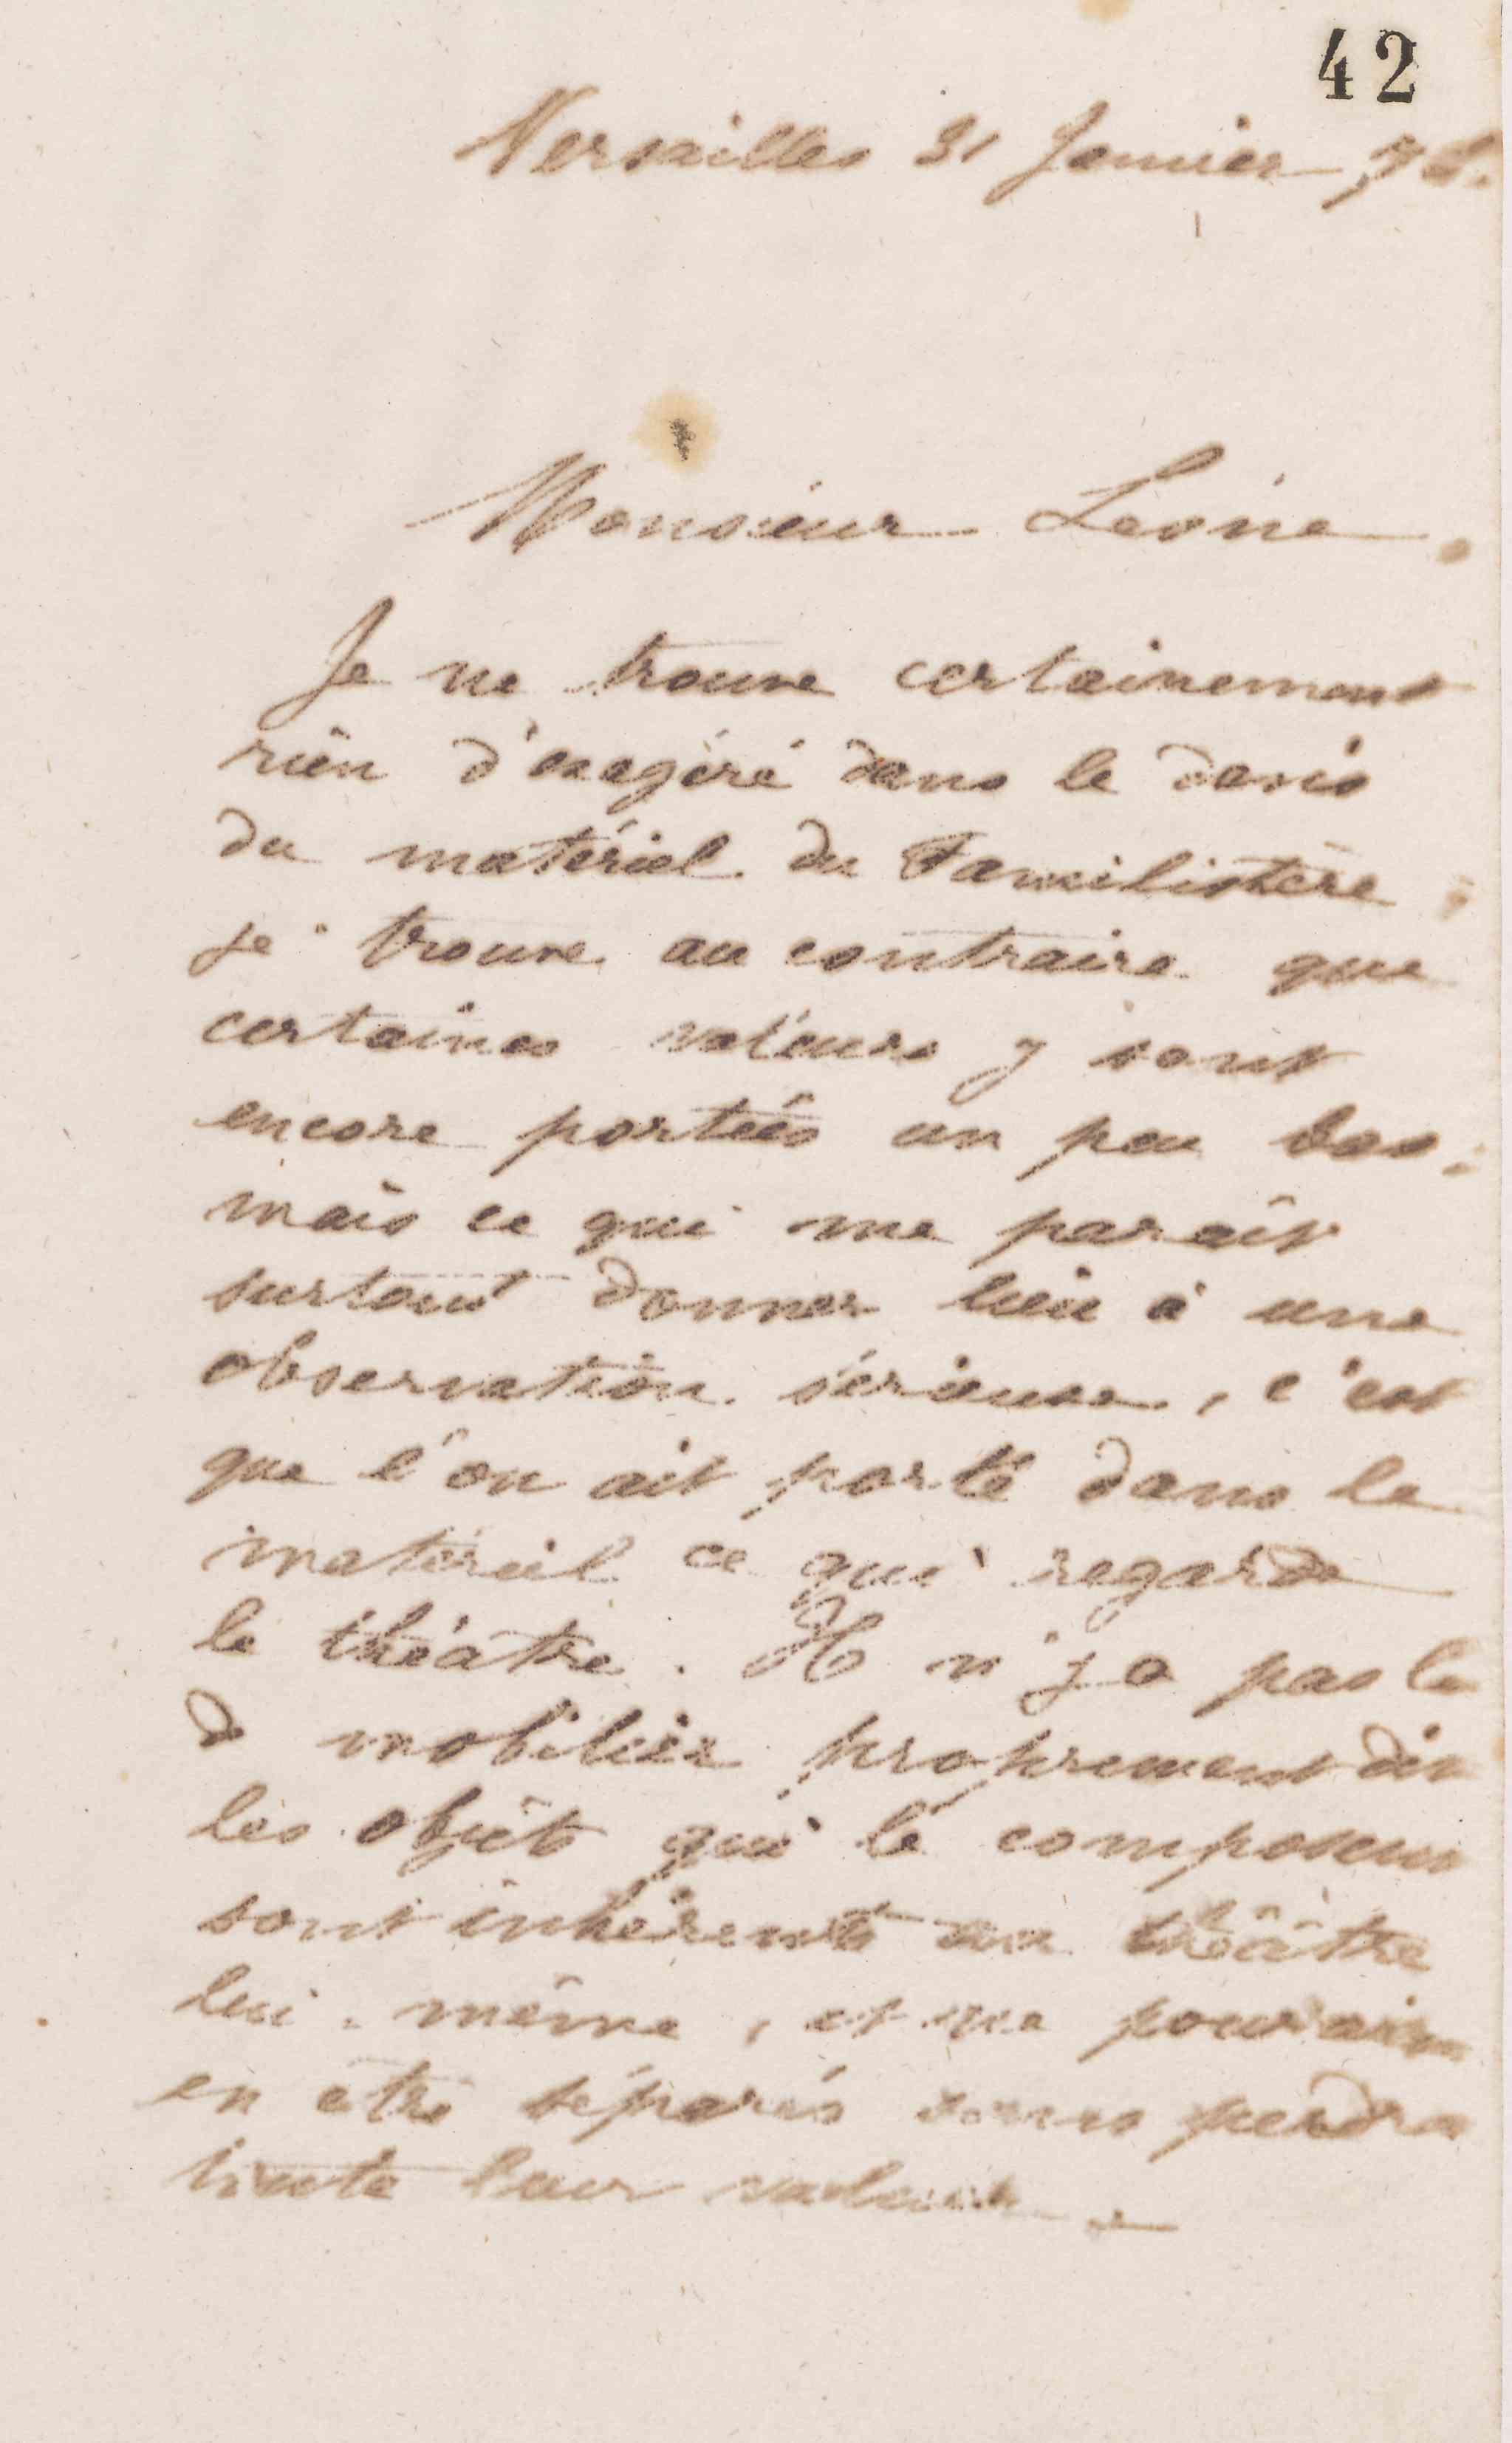 42
Versailles 31 Janvier
Monsieur
Je ne trouve certainement
rien d'exagéré dans le devis
du matériel du Familistère
je trouve au contraire que
certaines valeurs y sont
encore portées un peu bas
mais ce qui me parait
surtout donner lieu à une
observation sérieuse, c'est
que l'on ait porté dans le
matériel ce qui regarde
le théâtre. Il n'y a pas là
de mobilier proprement dit
les objets qui le composent
sont inhérents au théâtre
lui-même, et ne pourraient
en être séparés sans perdre
toute leur valeur